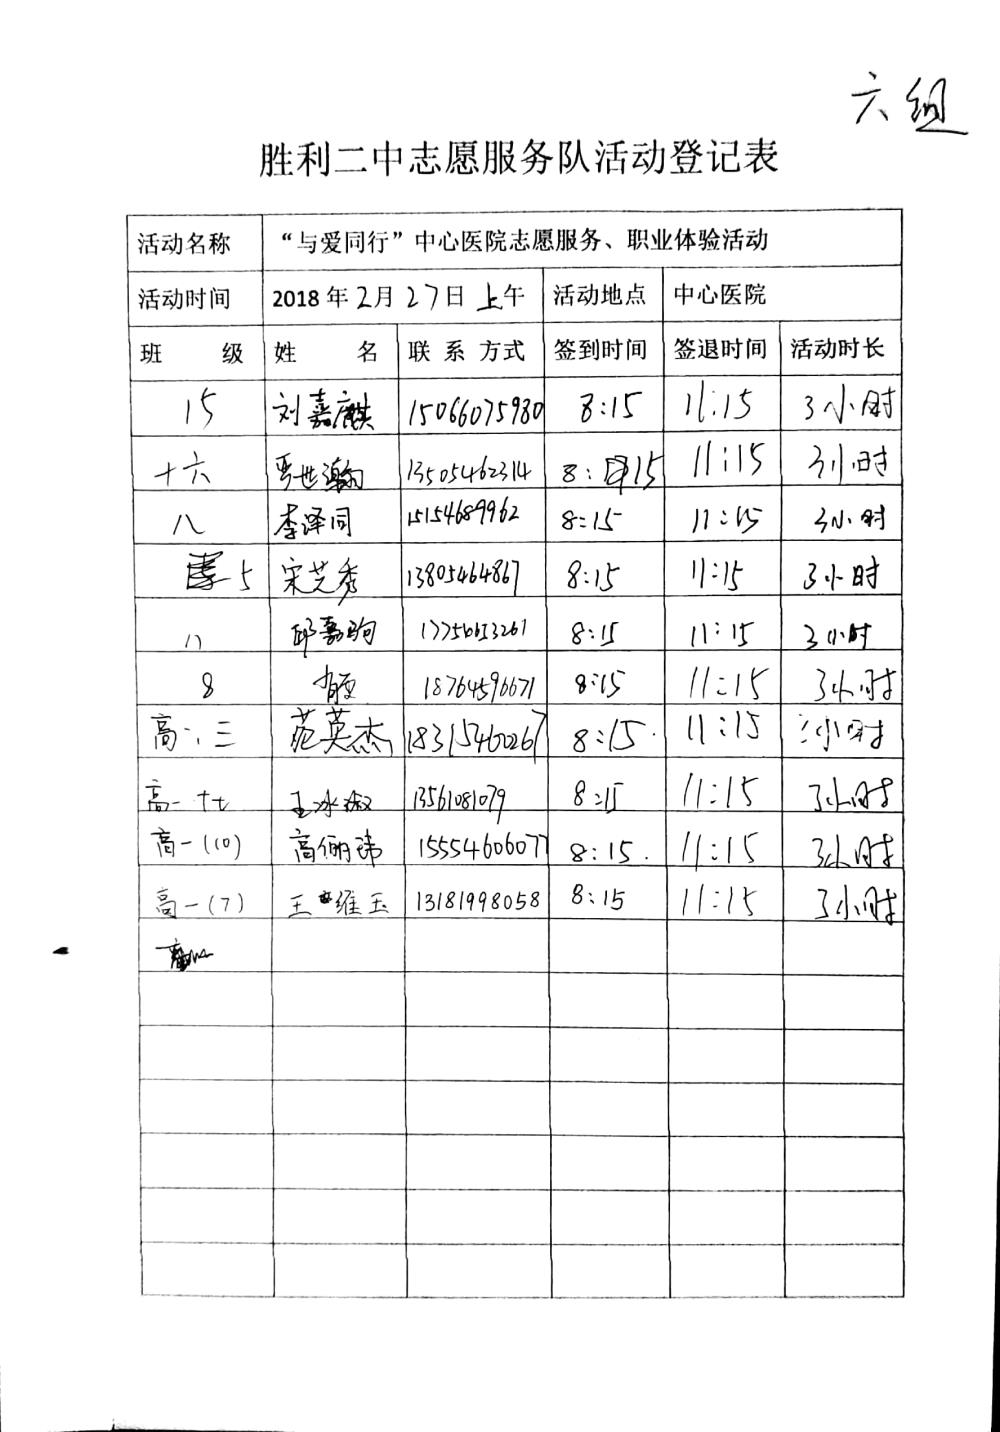 六组
胜利二中志愿服务队活动登记表
活动名称 “与爱同行”中心医院志愿服务、职业体验活动
活动时间 2018年2月27日上午 活动地点 中心医院
班 级 姓 名 联系方式 签到时间 签退时间 活动时长
15 刘嘉麒 15066075980 8:15 11:15 3小时
十六 贾世瀚 13505462314 8:15 11:15 3小时
八 李泽同 15154689962 8:15 11:15 3小时
5 宋芝秀 13805464867 8:15 11:15 3小时
八 邱嘉驹 17756013261 8:15 11:15 3小时
8 18764596671 8:15 11:15 3小时
高一、三 范英杰 18315460267 8:15 11:15 3小时
高一 十七 王冰淑 13561081079 8:15 11:15 3小时
高一(10) 高俪玮 15554606077 8:15 11:15 3小时
高一(7) 王维玉 13181998058 8:15 11:15 3小时